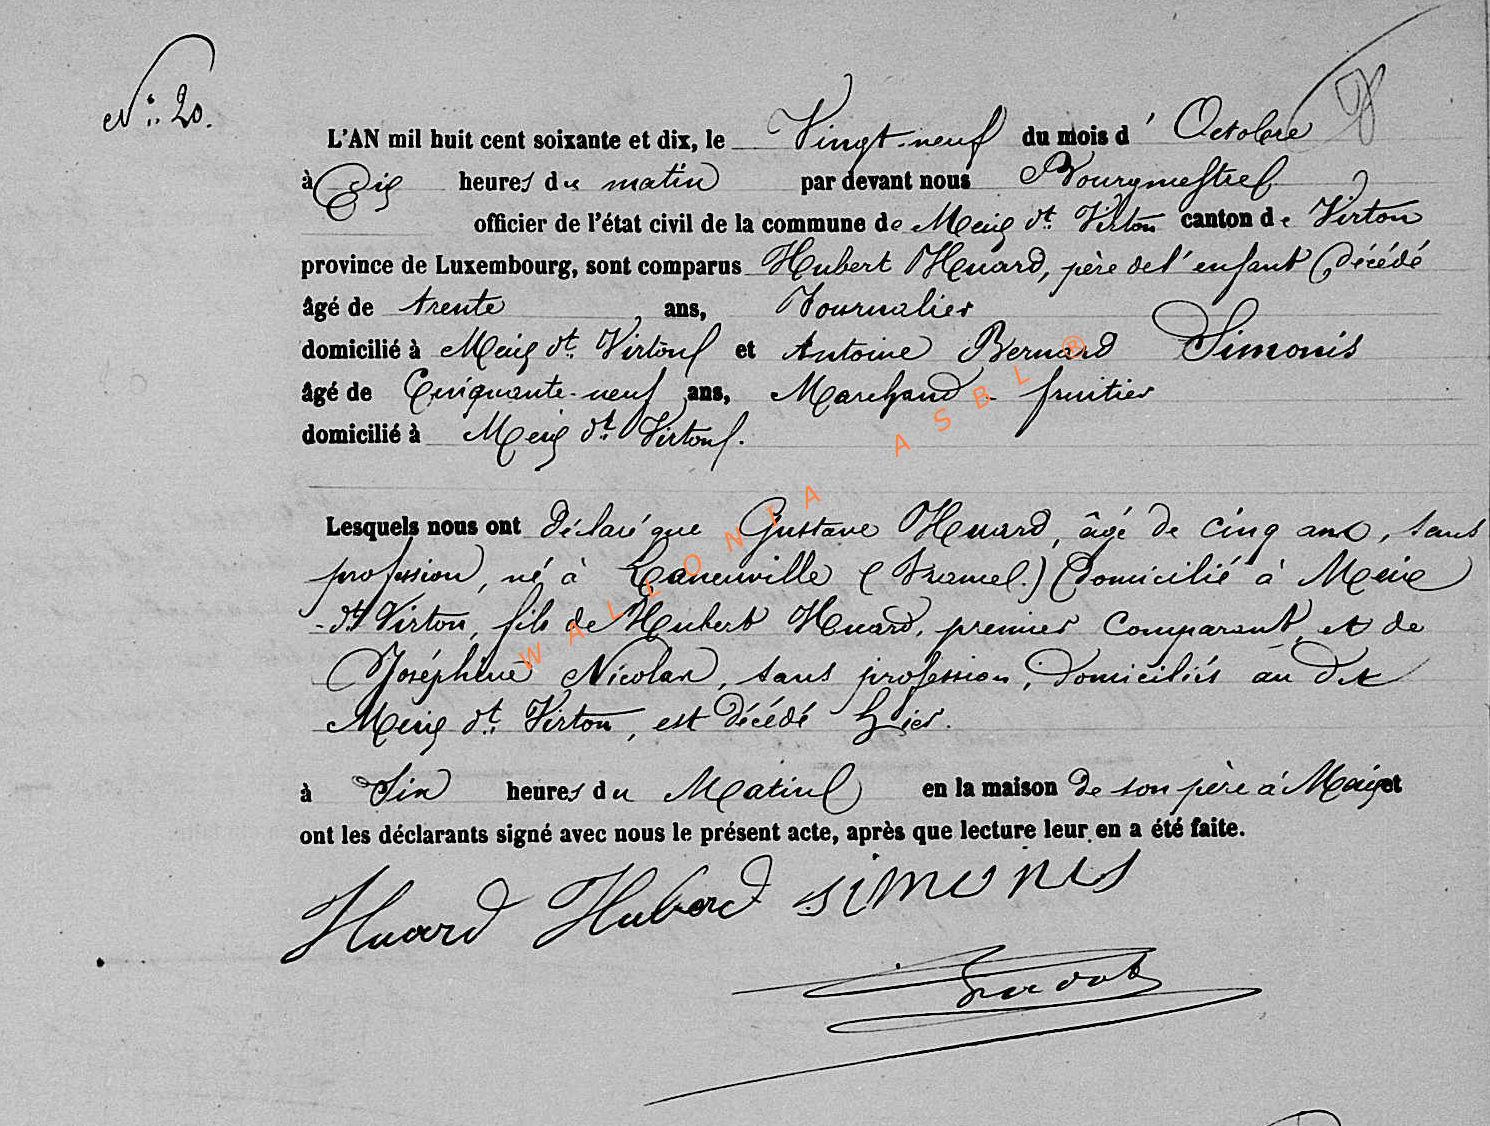 N° 20.
L'AN mil huit cent soixante et dix, le Vingt-neuf du mois d' Octobre
à Dix heures du matin par devant nous Bourgmestre
officier de l'état civil de la commune de Meix dt Virton canton de Virton
province de Luxembourg, sont comparus Hubert Huard, père de l'enfant décédé
âgé de trente ans, Journalier
domicilié à Meix dt Virton et Antoine Bernard Simonis
âgé de Cinquante-neuf ans, Marchand-fruitier
domicilié à Meix dt Virton.
Lesquels nous ont déclaré que Gustave Huard, âgé de cinq ans, sans
profession, né à Laneuville () domicilié à Meix
-dt Virton, fils de Hubert Huard, premier comparant, et de
Joséphine Nicolas, sans profession, domiciliés au dit
Meix dt Virton, est décédé hier.
à Six heures du Matin en la maison de son père à Meix et
ont les déclarants signé avec nous le présent acte, après que lecture leur en a été faite.
Huard Hubert simonis
WALLONIA ASBL ®